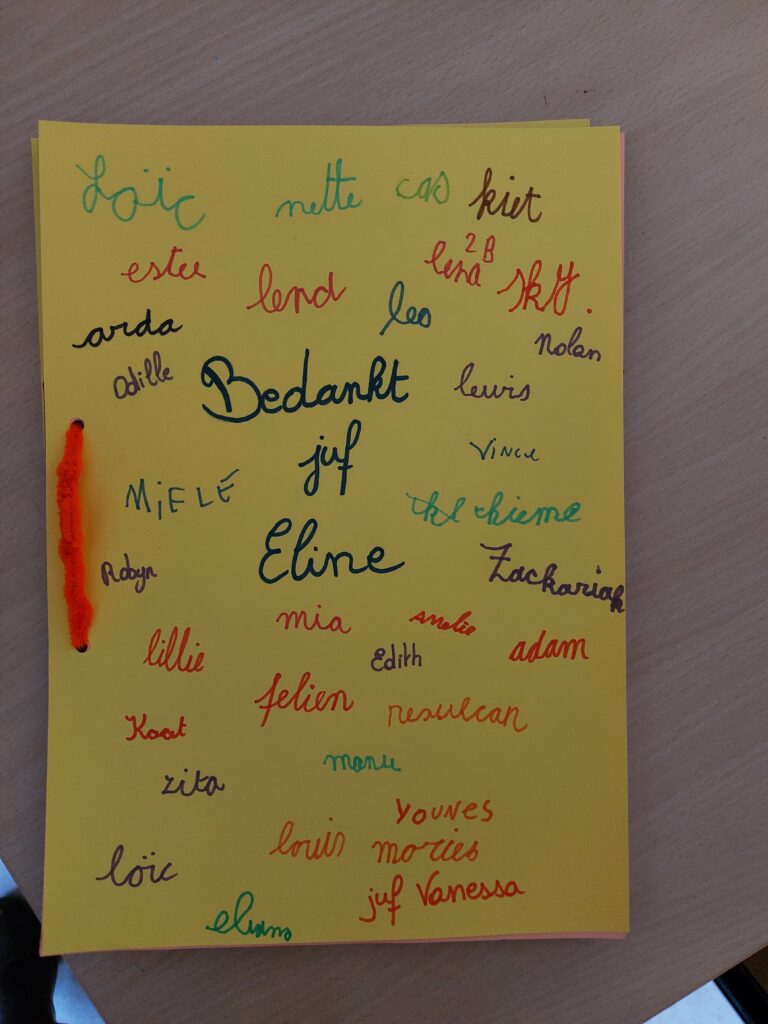 Loïc nette cas kiet
estee lend lena 2B sky.
arda leo Nolan
Odille Bedankt lewis
juf Vince
MiELÉ rhieme
Robyn Eline Zackariah
mia amelie
lillie Edith adam
felien resulcan
Kaat
zita manu
YOUNES
louis mories
loïc juf Vanessa